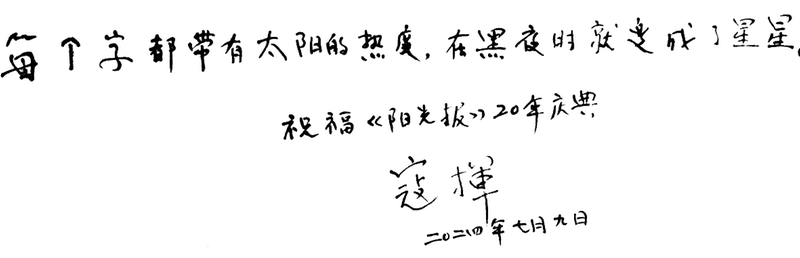 每个字都带有太阳的热度，在黑夜时就变成了星星。
祝福《阳光报》20年庆典
寇挥
二〇二四年七月九日